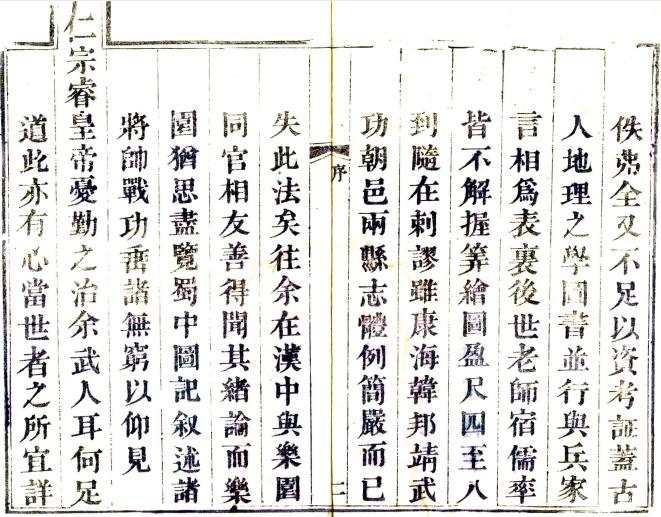 佚弗全又不足以資考証蓋古
人地理之學圖書並行與兵家
言相爲表裏後世老師宿儒率
皆不解握筭繪圖盈尺四至八
到隨在刺謬雖康海韓邦靖武
功朝邑兩縣志體例簡嚴而已
序
二
失此法矣往余在漢中與樂園
同官相友善得聞其緒論而樂
園猶思盡覽蜀中圖記叙述諸
將帥戰功垂諸無窮以仰見
仁宗睿皇帝憂勤之治余武人耳何足
道此亦有心當世者之所宜詳